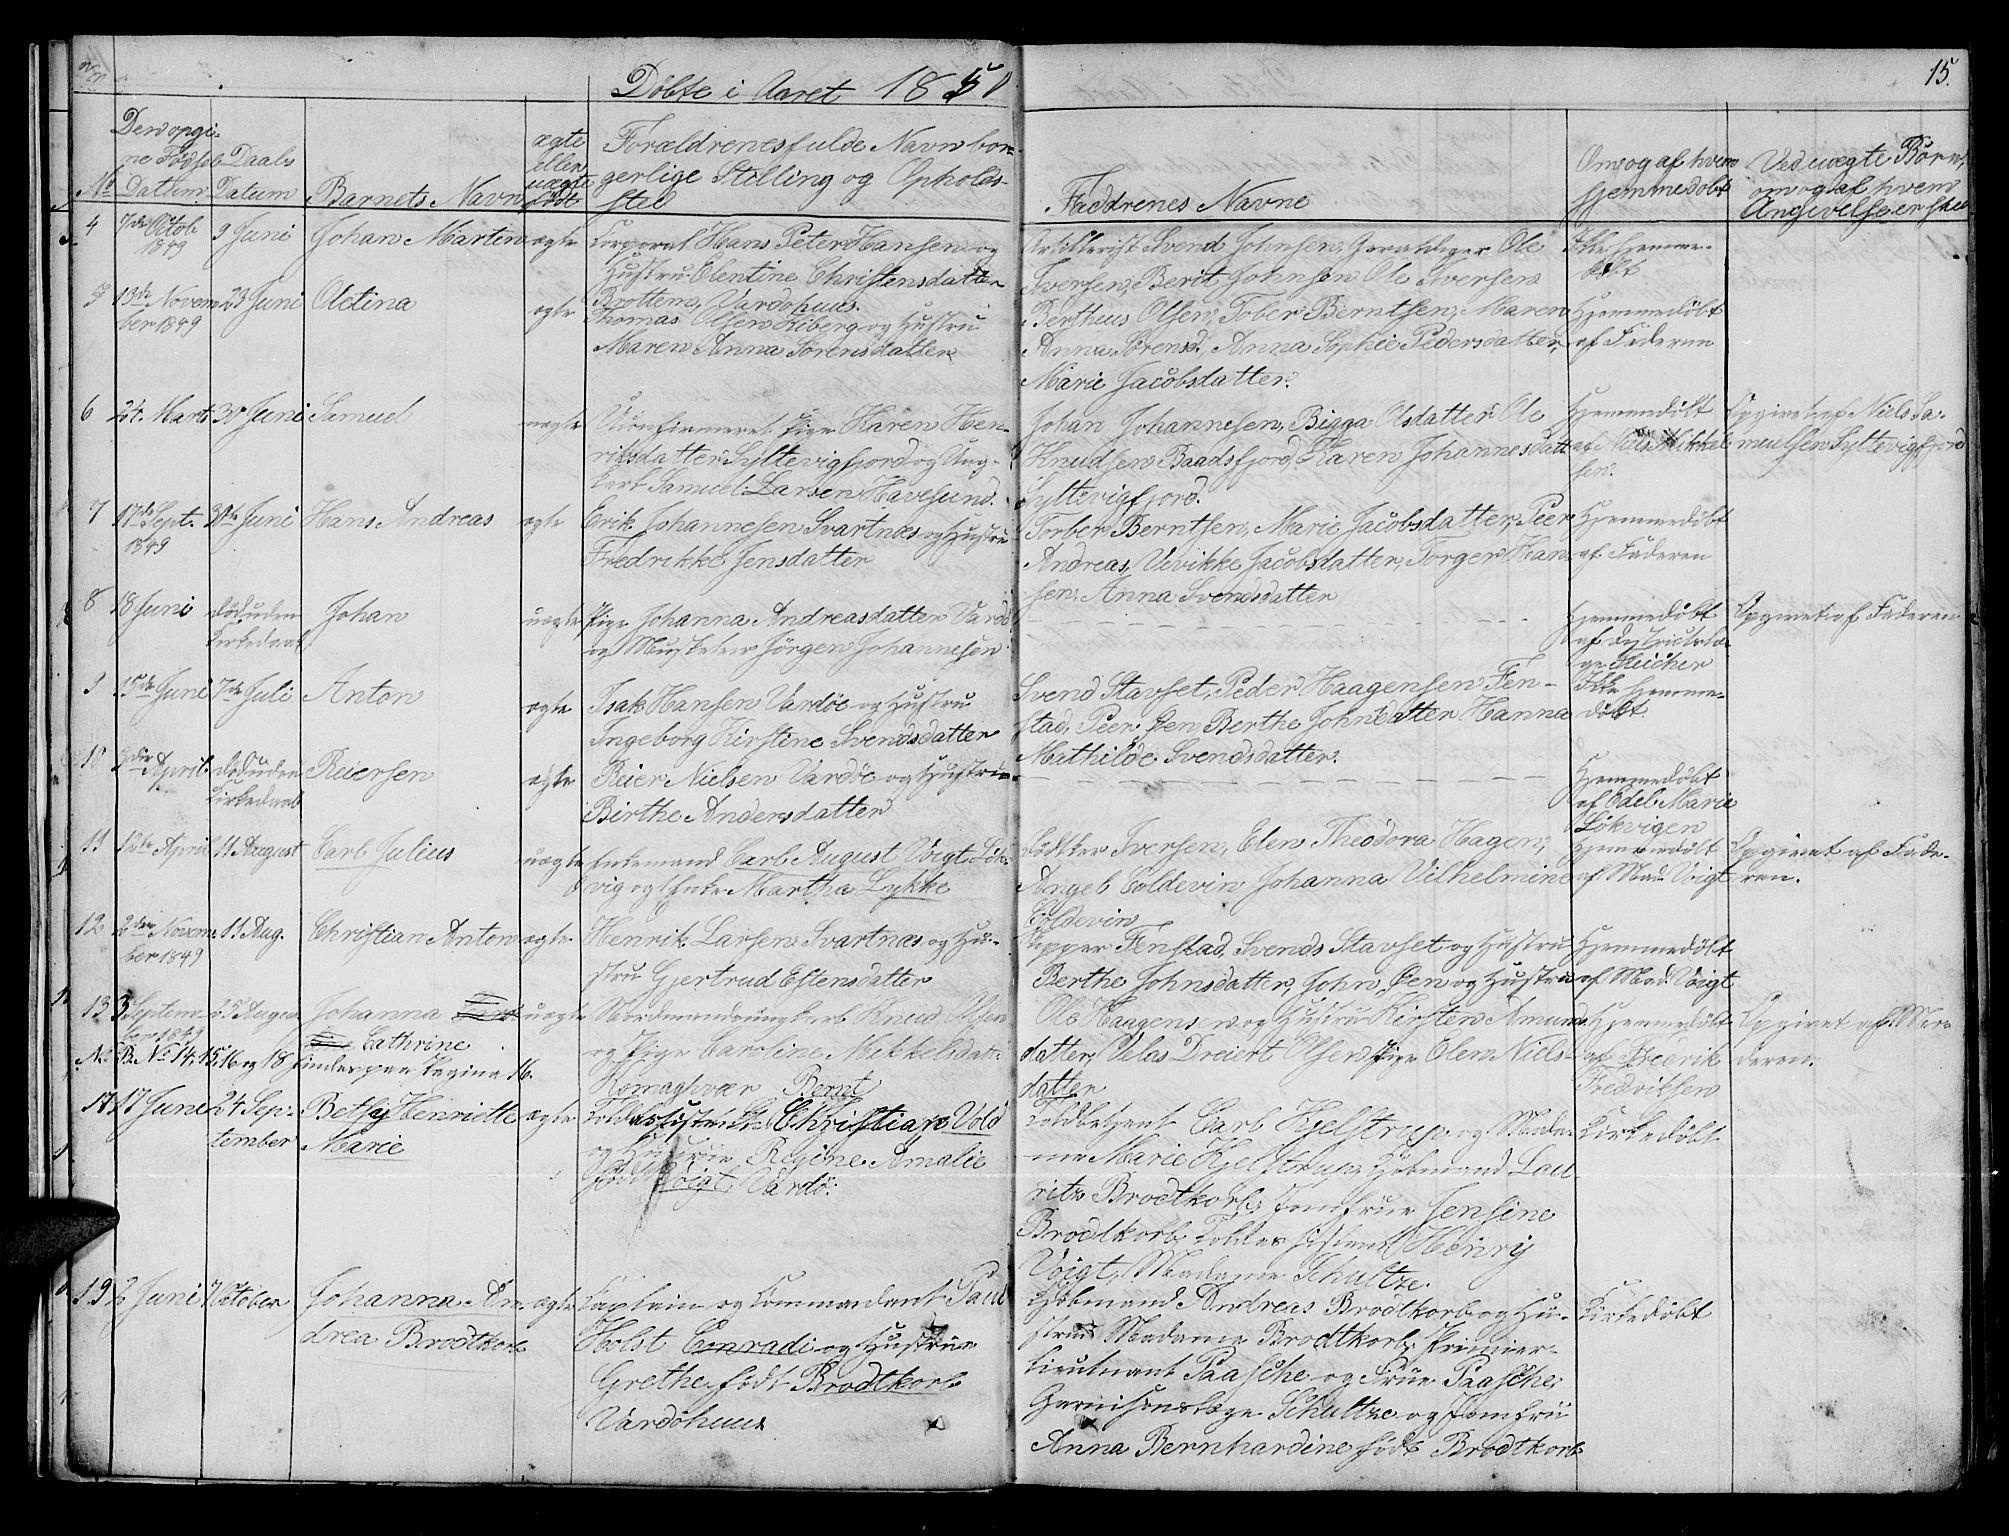 Døbte i Aaret 1850
15.
Den opgi-
ne Fødsels Daabs
No Datum Datum Barnets Navn
ægte eller uægte født
Forældrenes fulde Navn bor-
gerlige Stilling og Opholds-
sted
Faddrenes Navne
Om og af hvem
hjemmedøbt
Ved uægte Børn,
om og af hvem
Angivelsen skeet
4 7de Octob 1849 9 Juni Johan Marten ægte
Corporal Hans Peter Hansen og
Hustru Elentine Christensdatter
Brottem, Vardøhuus.
Artillerist Svend Johnsen, Gevaldiger Ole
Iversen, Berit Johnsen Ole Iversen
Ikke hjemme-
døbt
5 13de Novem 23 Juni Oletina ægte
ber 1849
Thomas Olsen Kiberg og Hustru
Maren Anna Sørensdatter
Bertheus Olsen, Tober Berntsen, Maren
Anna Sørensd, Anna Sophie Pedersdatter,
Marie Jacobsdatter.
Hjemmedøbt
af Faderen
6 24. Marts 30 Juni Samuel uægte
Uconfirmeret Pige Karen Hen-
riksdatter Syltevigfjord og Ung-
karl Samuel Larsen Havesund.
Johan Johannesen, Bigga Olsdatter Ole
Knudsen Baadsfjord, Karen Johannesdatt
Syltevigfjord.
Hjemmedøbt
af Nils Mikkel
sen.
Opgivet af Niels Sa-
muelsen Syltevigfjord
7 17de Sept. 30te Juni Hans Andreas ægte
1849
Erik Johannesen Svartnæs og Hustru
Fredrikke Jensdatter
Torber Berntsen, Marie Jacobsdatter, Peer
Andreas, Vivikke Jacobsdatter, Torger Han-
sen, Anna Svendsdatter
Hjemmedøbt
af Faderen
8 18 Juni død uden Johan uægte
Kirkedaab
Pige Johanna Andreasdatter Vardø
og Musketeer Jørgen Johannesen
Hjemmedøbt
af Districtslæ-
ge Kleicher
Opgivet af Faderen
9 15de Juni 7de Juli Anton ægte
Isak Hansen Vardøe og Hustru
Ingeborg Kirstine Svendsdatter
Svend Stavset, Peder Haagensen Fen-
stad, Peer Øen, Berthe Johnsdatter Hanna
Mathilde Svendsdatter.
Ikke hjemme-
døbt.
10 2den April død uden Reiersen ægte
Kirkedaab
Reier Nielsen Vardøe og Hustru
Birthe Andersdatter
Hjemmedøbt
af Edel Marie
Løkvigen
11 12te April 11 August Carl Julius uægte
Enkemand Carl August Voigt Løk-
vig og Enke Martha Lykke
Iversen, Elen Theodora Hagen,
Angel Coldevin Johanna Vilhelmine
Coldevin
Hjemmedøbt
af Mad. Voigt
Opgivet af Fade-
ren.
12 2den Novem 11 Aug. Christian Anton ægte
ber 1849
Henrik Larsen Svartnæs og Hu-
stru Gjertrud Estensdatter
Skipper Fenstad, Svend Stavset og Hustru
Berthe Johnsdatter, John Øen og Hustru
Hjemmedøbt
af Mad. Voigt
13 3 Septem 25 August Johanna uægte
ber 1849 Cathrine
Nordmand ungkarl Knud Olsen
og Pige Caroline Mikkelsdatt.
Komagsvær
Ole Haagensen og Hustru Kirsten Amund
datter, Velas Dreiert Olsen Pige Elen Niels-
datter
Hjemmedøbt
af Fredrik
Fredriksen
Opgivet af Mo-
deren.
N.B. No 14, 15, 16 og 18 findes paa Pagina 16.
17 17 Juni 24 Sep- Betsy Henriette ægte
tember Marie
Bernt
Toldassistent Christian Vold
og Hustrue Regine Amalie
født Voigt, Vardø.
Toldbetjent Carl Kjelstrup og Mada-
me Marie Kjelstrup, Kjøbmand Lau-
ritz Brodtkorb, Jomfrue Jensine
Brodtkorb, Toldassistent Henry
Voigt, Madame Schultze.
Kirkedøbt
19 2 Juni 7 October Johanna An- ægte
drea Brodtkorb
Captain og Commandant Paul
Holst Conradi og Hustrue
Grethe født Brodtkorb
Vardøhuus
Kjøbmand Andreas Brodtkorb og Hu-
strue Madame Brodtkorb, Primier-
lieutnant Paasche og Frue Paasche,
Garnisonslæge Schultze og Jomfru
Anna Bernhardine født Brodtkorb
Kirkedøbt